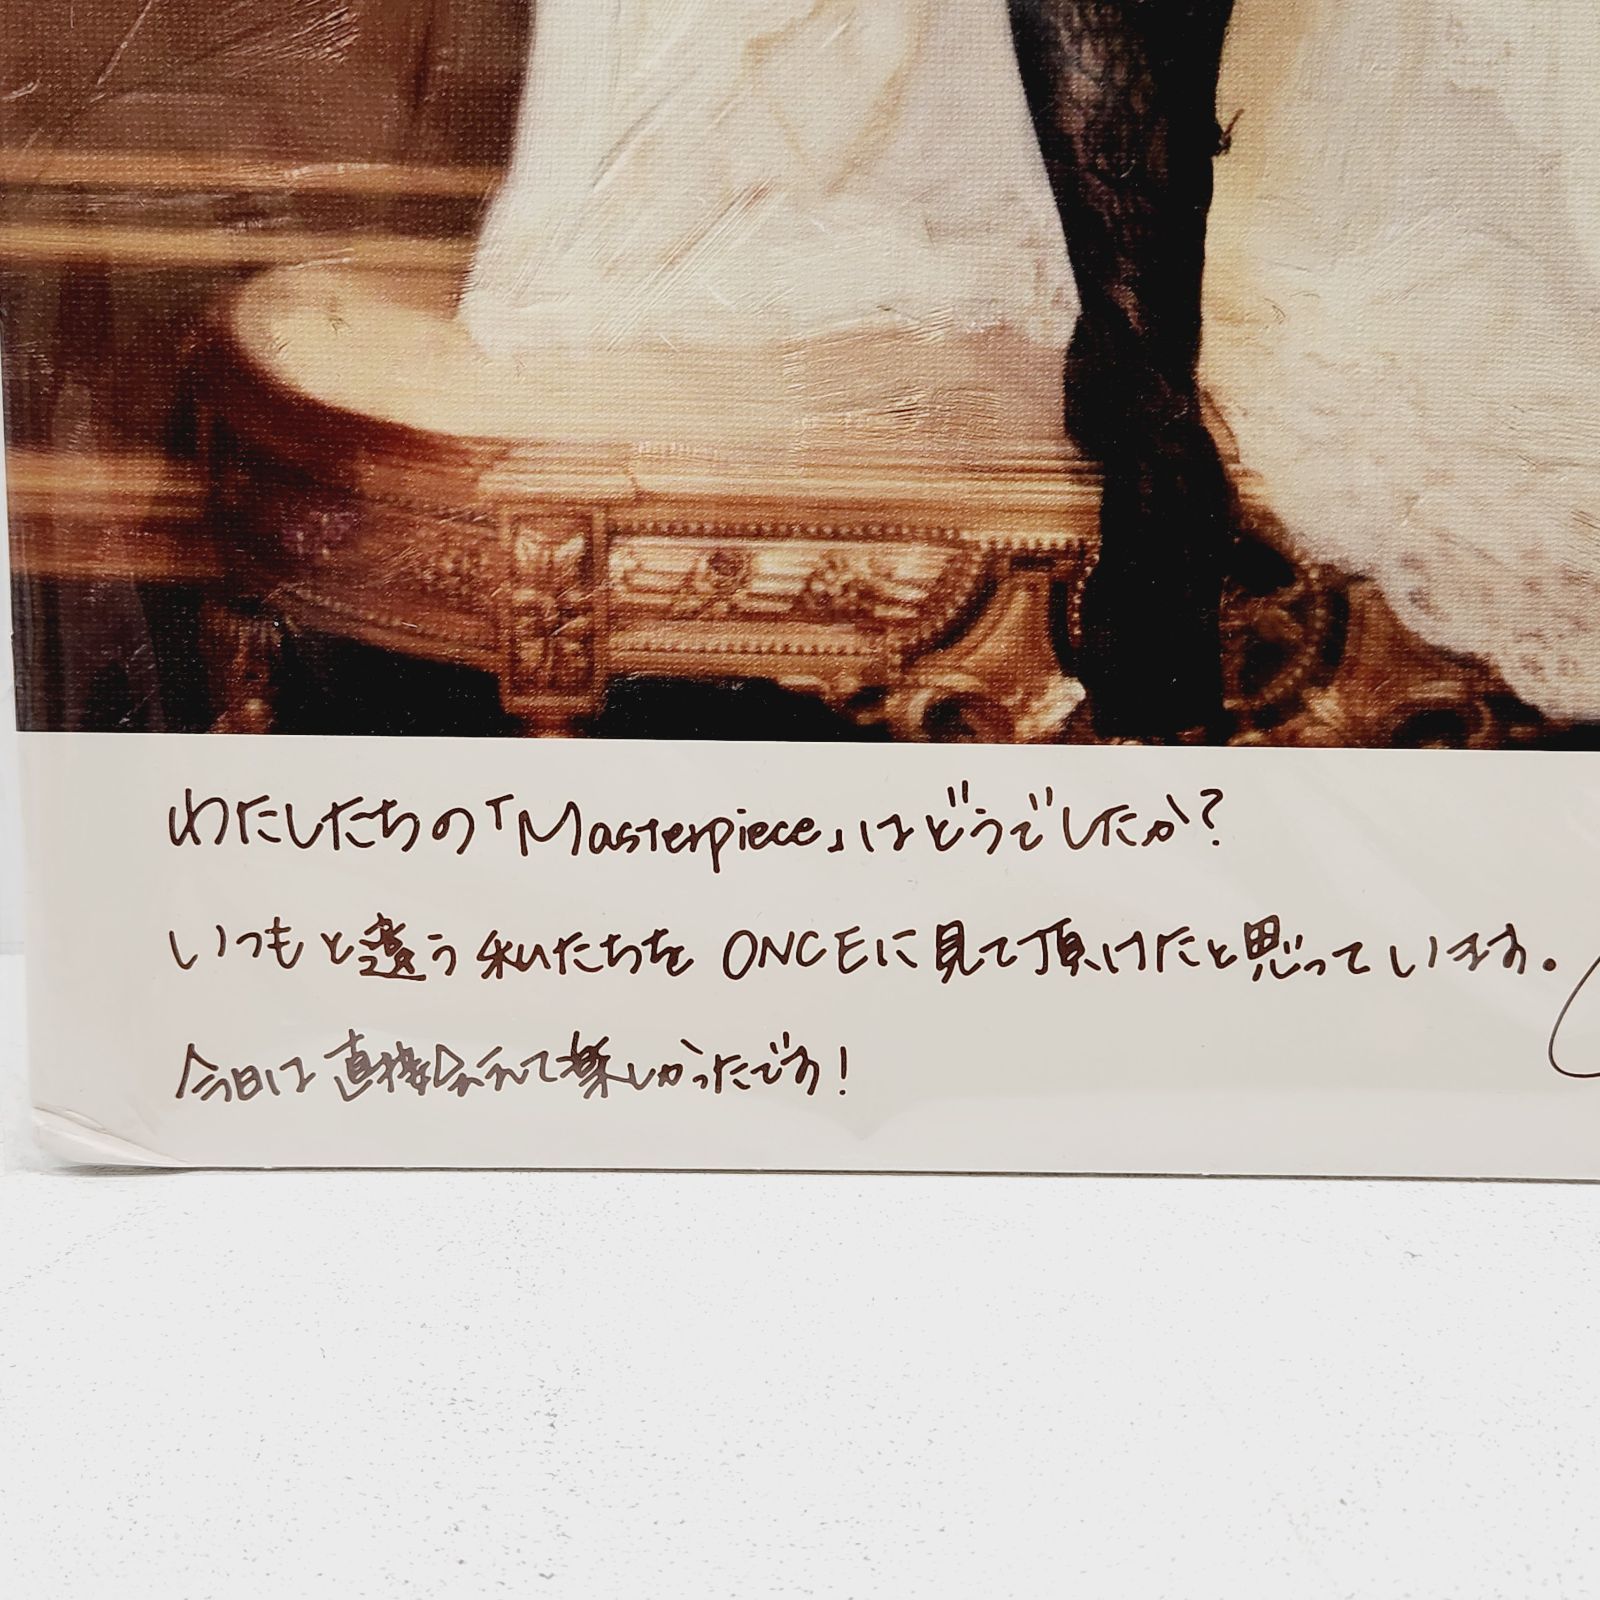 わたしたちの「Masterpiece」はどうでしたか?
いつもと違う私たちを ONCEに見て頂けたと思っています。
今日は直接会えて楽しかったです!